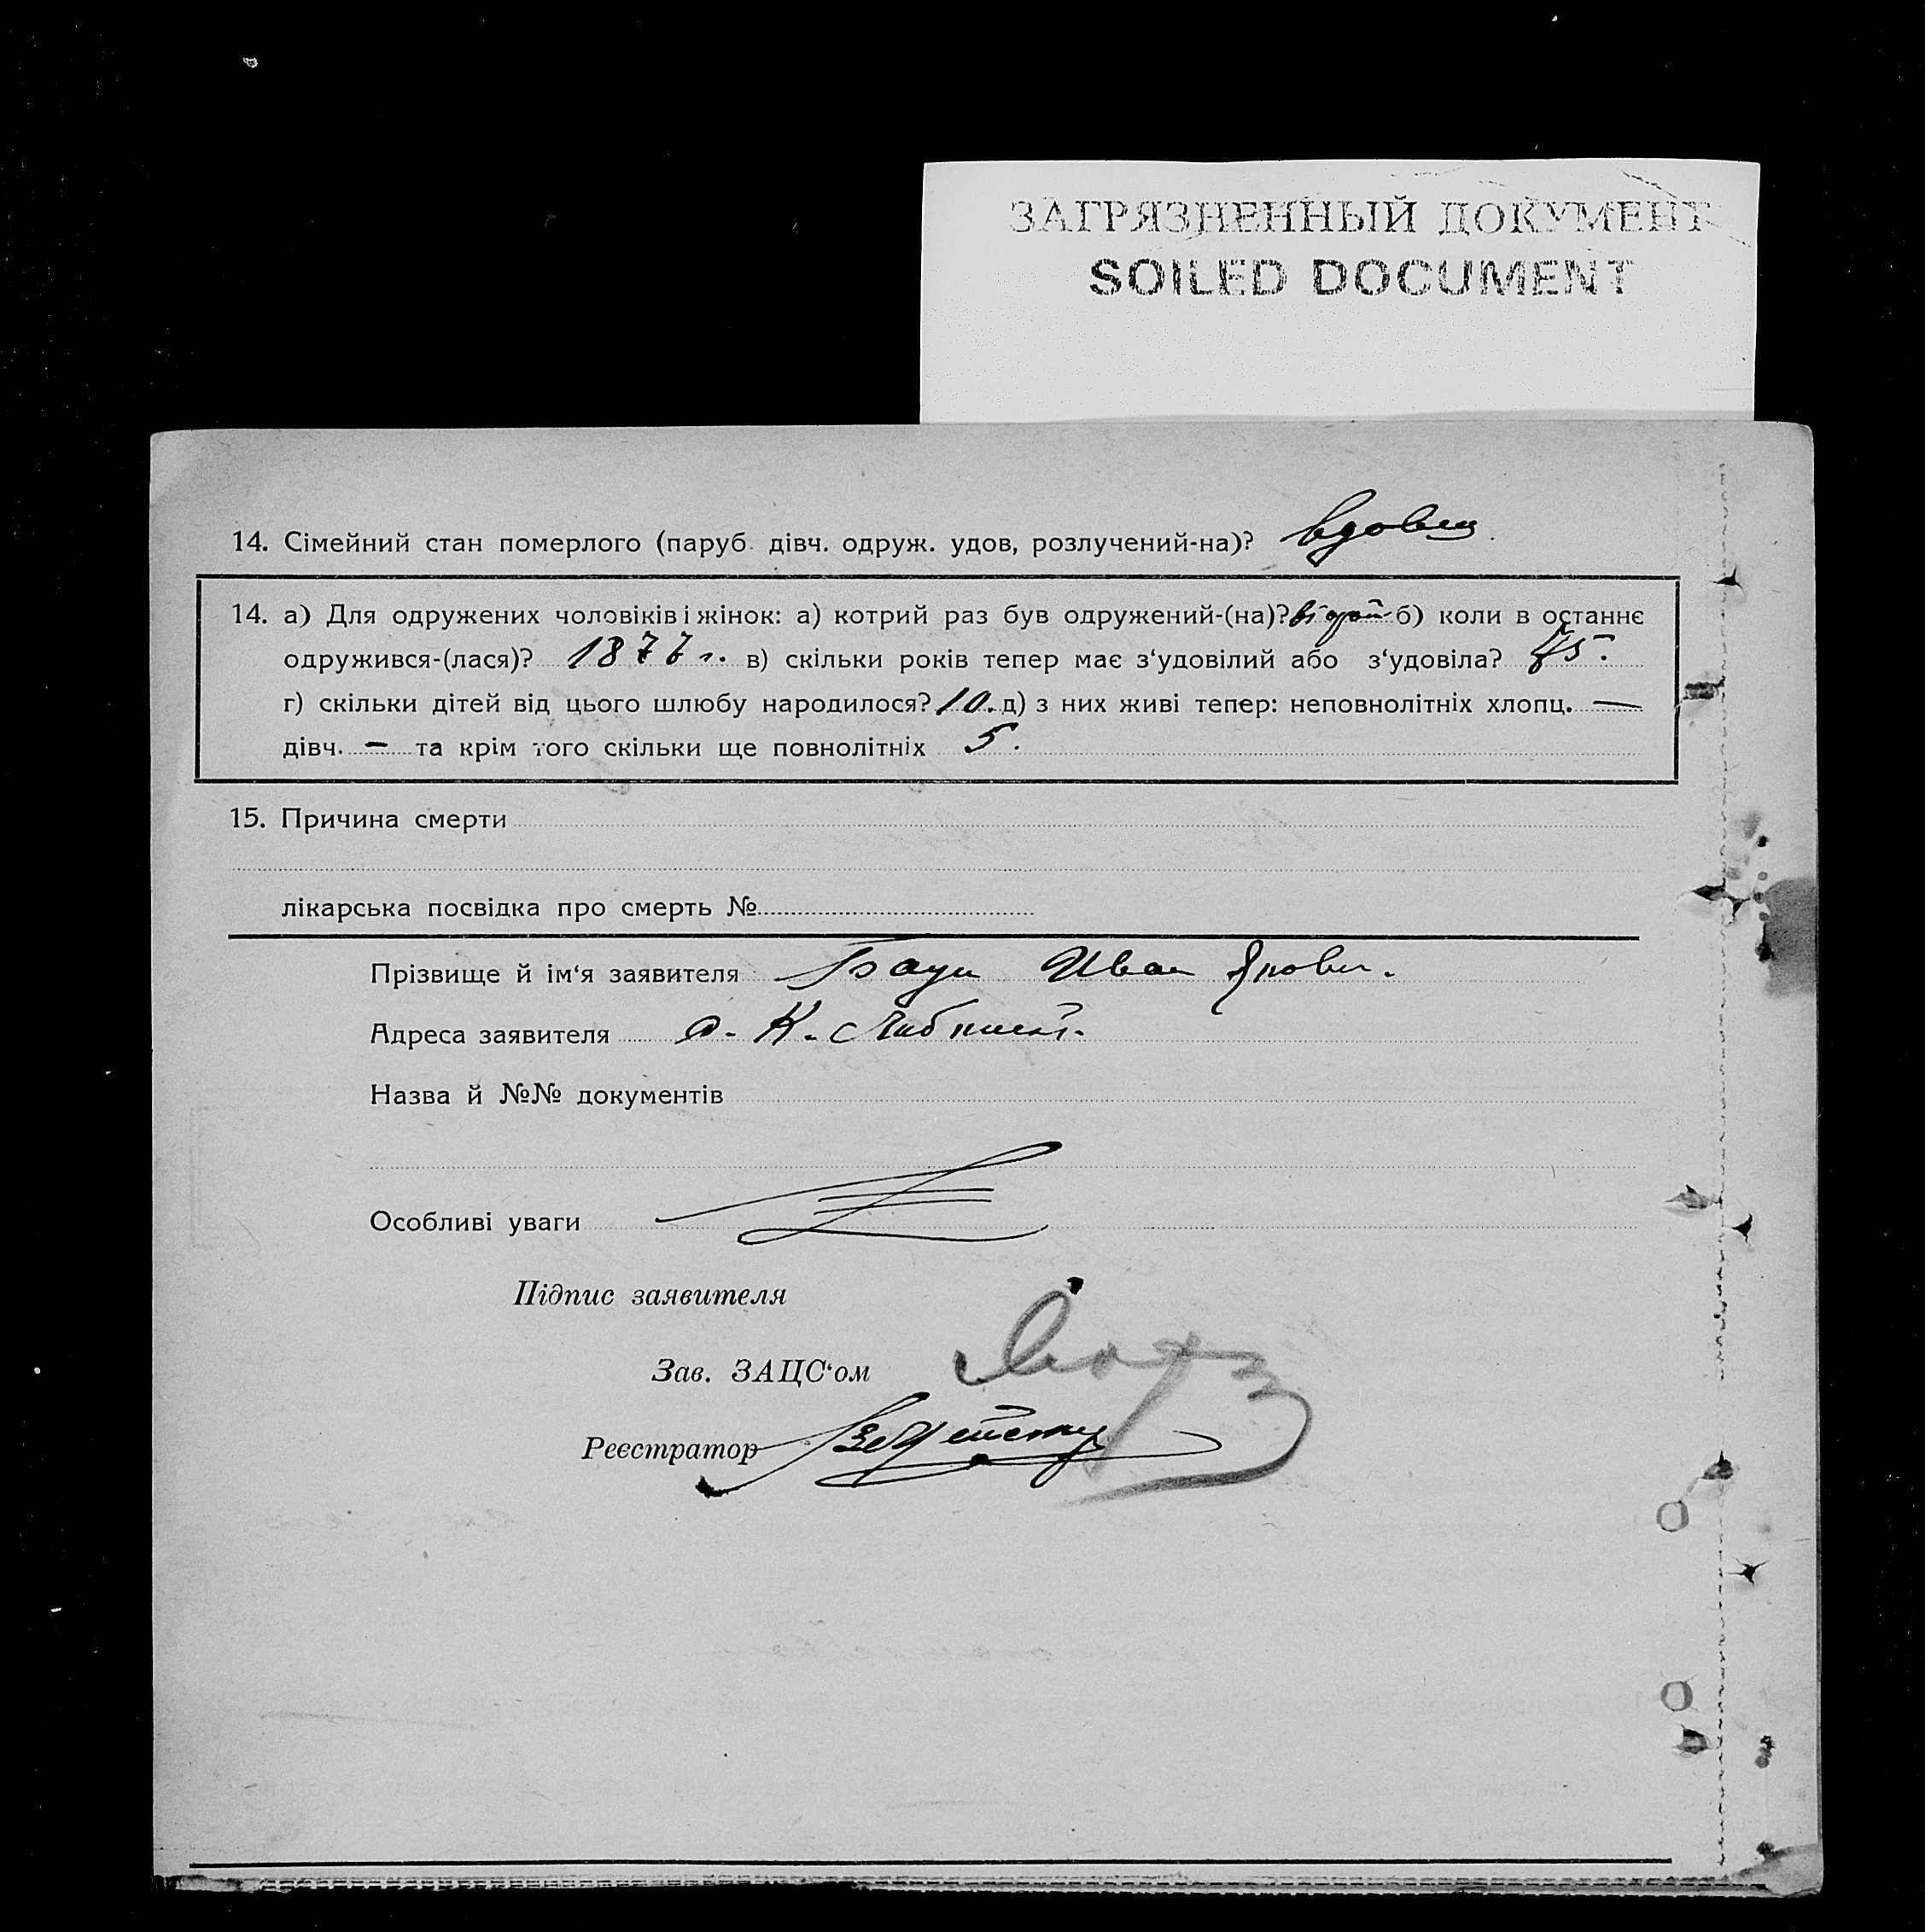 ЗАГРЯЗНЕННЫЙ ДОКУМЕНТ
SOILED DOCUMENT
14. Сімейний стан померлого (паруб. дівч. одруж. удов, розлучений-на)? вдовец
14. а) Для одружених чоловіків і жінок: а) котрий раз був одружений-(на)? б) коли в останнє
одружився-(лася)? 1876 г. в) скільки років тепер має з‘удовілий або з‘удовіла? 75.
г) скільки дітей від цього шлюбу народилося? 10. д) з них живі тепер: неповнолітніх хлопц. —
дівч. — та крім того скільки ще повнолітніх 5.
15. Причина смерти
лікарська посвідка про смерть №
Прізвище й ім‘я заявителя Иван Яковл.
Адреса заявителя с. К.
Назва й №№ документів
Особливі уваги
Підпис заявителя
Зав. ЗАЦС‘ом
Реєстратор